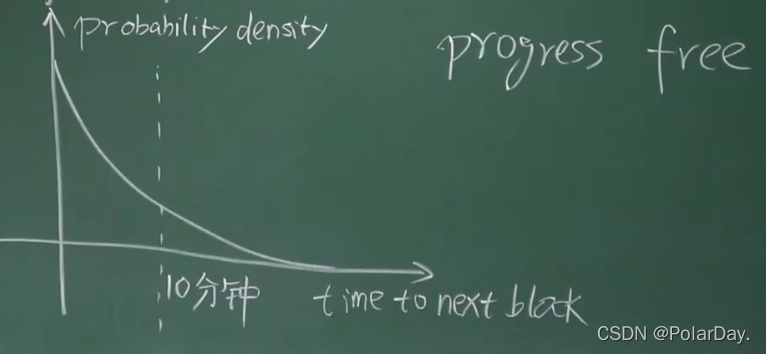 probability density
progress free
10分钟
time to next block
CSDN @PolarDay.